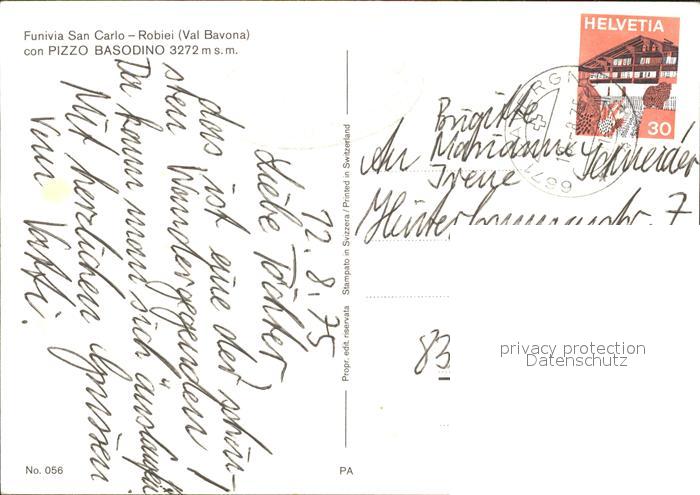 Funivia San Carlo – Robiei (Val Bavona)
con PIZZO BASODINO 3272 m s.m.
12.8.75
Liebe Töchter
das ist eine der schön-
sten Wandergegenden!
Da kann man sich auslaufen
Mit herzlichen Grüssen
vom Vatti.
Propr. edit. riservata Stampato in Svizzera / Printed in Switzerland
HELVETIA
30
6671
Brigitte
An Marianne Schneider
Irene
83
privacy protection
Datenschutz
No. 056
PA